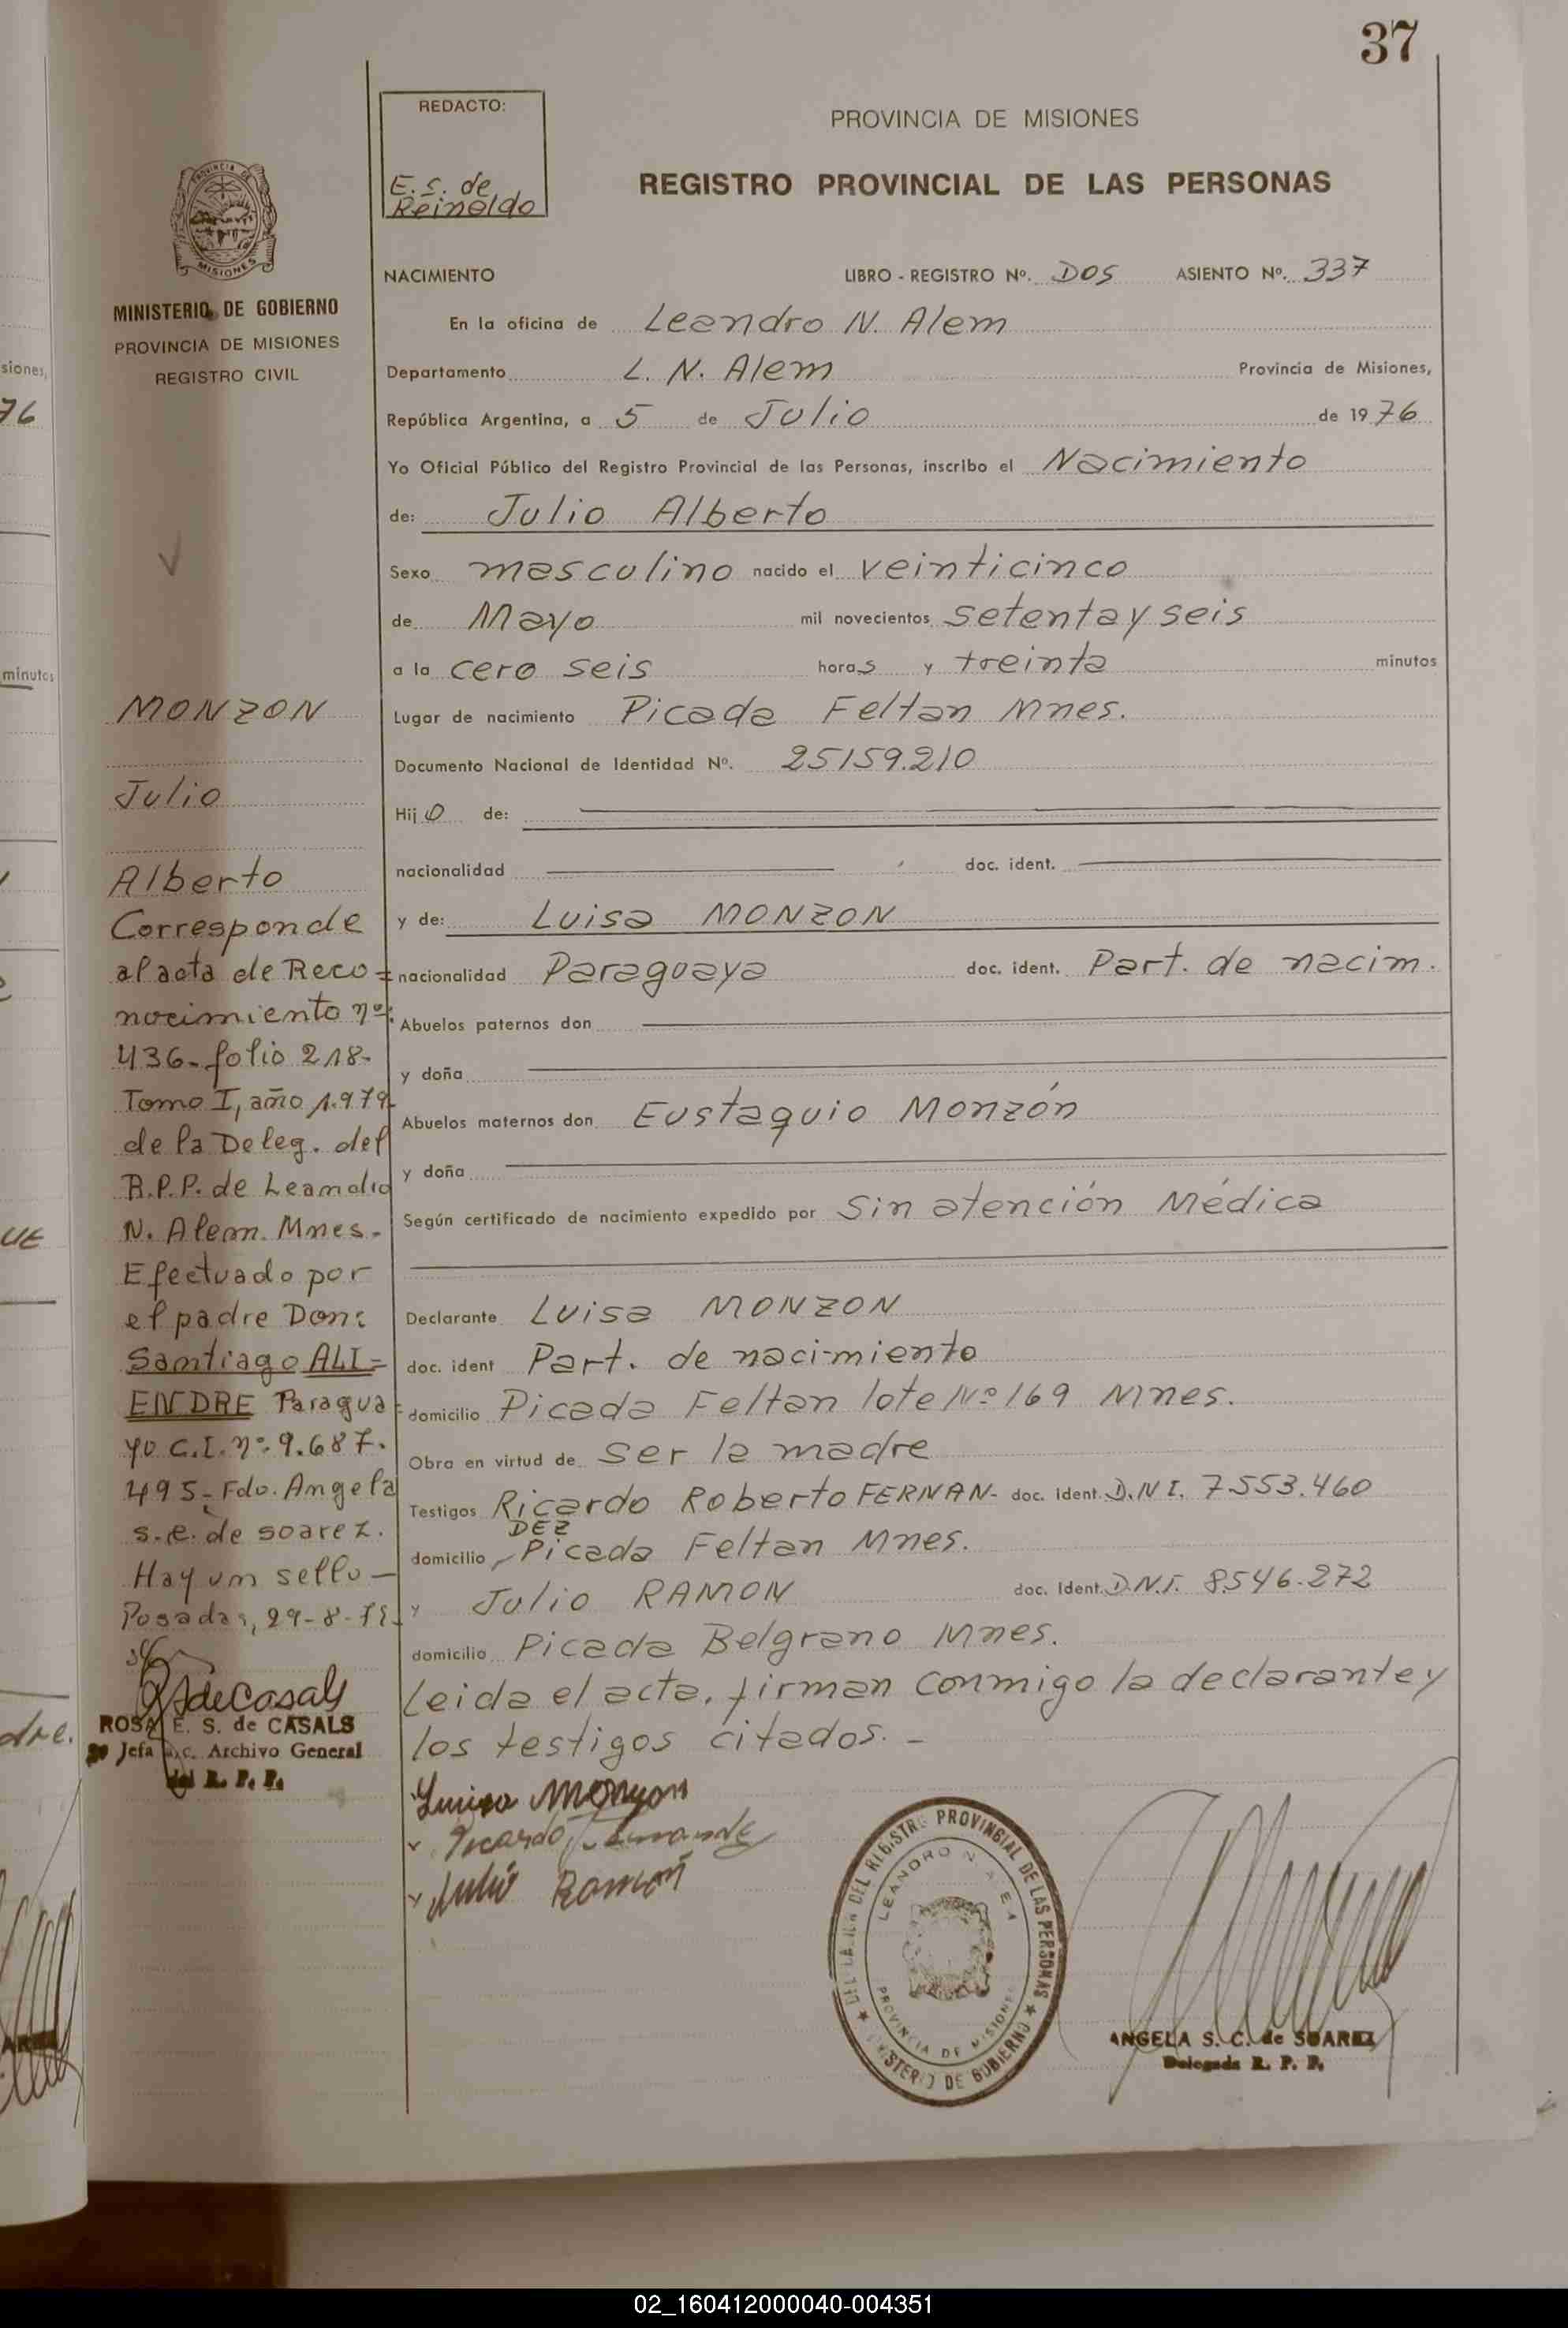 37
REDACTO:
E. S. de
Reinaldo
PROVINCIA DE MISIONES
REGISTRO PROVINCIAL DE LAS PERSONAS
MISIONES
MINISTERIO DE GOBIERNO
PROVINCIA DE MISIONES
REGISTRO CIVIL
NACIMIENTO LIBRO - REGISTRO Nº. DOS ASIENTO Nº. 337
En la oficina de Leandro N. Alem
Departamento L. N. Alem Provincia de Misiones,
República Argentina, a 5 de Julio de 1976
Yo Oficial Público del Registro Provincial de las Personas, inscribo el Nacimiento
de: Julio Alberto
Sexo masculino nacido el veinticinco
de Mayo mil novecientos setenta y seis
a la cero seis horas y treinta minutos
Lugar de nacimiento Picada Feltan Mnes.
Documento Nacional de Identidad Nº. 25159.210
Hijo de:
nacionalidad doc. ident.
y de: Luisa MONZON
nacionalidad Paraguaya doc. ident. Part. de nacim.
Abuelos paternos don
y doña
Abuelos maternos don Eustaquio Monzón
y doña
Según certificado de nacimiento expedido por Sin atención Médica
Declarante Luisa MONZON
doc. ident Part. de nacimiento
domicilio Picada Feltan lote Nº 169 Mnes.
Obra en virtud de ser la madre
Testigos Ricardo Roberto FERNAN- doc. ident. D.N.I. 7553.460
DEZ
domicilio Picada Feltan Mnes.
y Julio RAMON doc. Ident. D.N.I. 8546.272
domicilio Picada Belgrano Mnes.
Leida el acta, firman conmigo la declarante y
los testigos citados. -
MONZON
Julio
Alberto
Corresponde
al acta de Reco=
nocimiento nº:
436-folio 218-
Tomo I, año 1.979-
de la Deleg. del
R.P.P. de Leandro
N. Alem. Mnes.-
Efectuado por
el padre Don:
Santiago ALI=
ENDRE Paragua=
yo C.I. nº. 9.687.
495-Fdo. Angela
s.e. de soarez.
Hay un sello-
Posadas, 29-8-79-
deCasals
ROSA E. S. de CASALS
Jefa a/c. Archivo General
del R. P. P.
Luisa Monzon
Ricardo Fernandez
Julio Ramon
DEL REGISTRO PROVINCIAL DE LAS PERSONAS
MINISTERIO DE GOBIERNO
LEANDRO N. ALEM
PROVINCIA DE MISIONES
ANGELA S. C. de SOAREZ
Delegada R. P. P.
siones,
76
minutos
UE
dre.
02_160412000040-004351